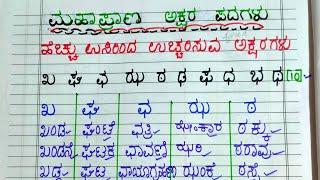 ಮಹಾಪ್ರಾಣ ಅಕ್ಷರ ಪದಗಳು
ಹೆಚ್ಚು ಉಸಿರಿಂದ ಉಚ್ಚರಿಸುವ ಅಕ್ಷರಗಳು
ಖ ಘ ಛ ಝ ಠ ಢ ಫ ಧ ಭ ಥ
ಖ ಘ ಛ ಝ ಠ
ಖಂಡ ಘಂಟೆ ಛತ್ರಿ ಝೇಂಕಾರ ಠಕ್ಕ
ಘಟಕ ಛಾವಣಿ ಝರಿ ಠರಾವು
ಖಡ್ಗ ಘಟ ಛಾಯಾಗ್ರಹಣ ಠಸ್ಸೆ